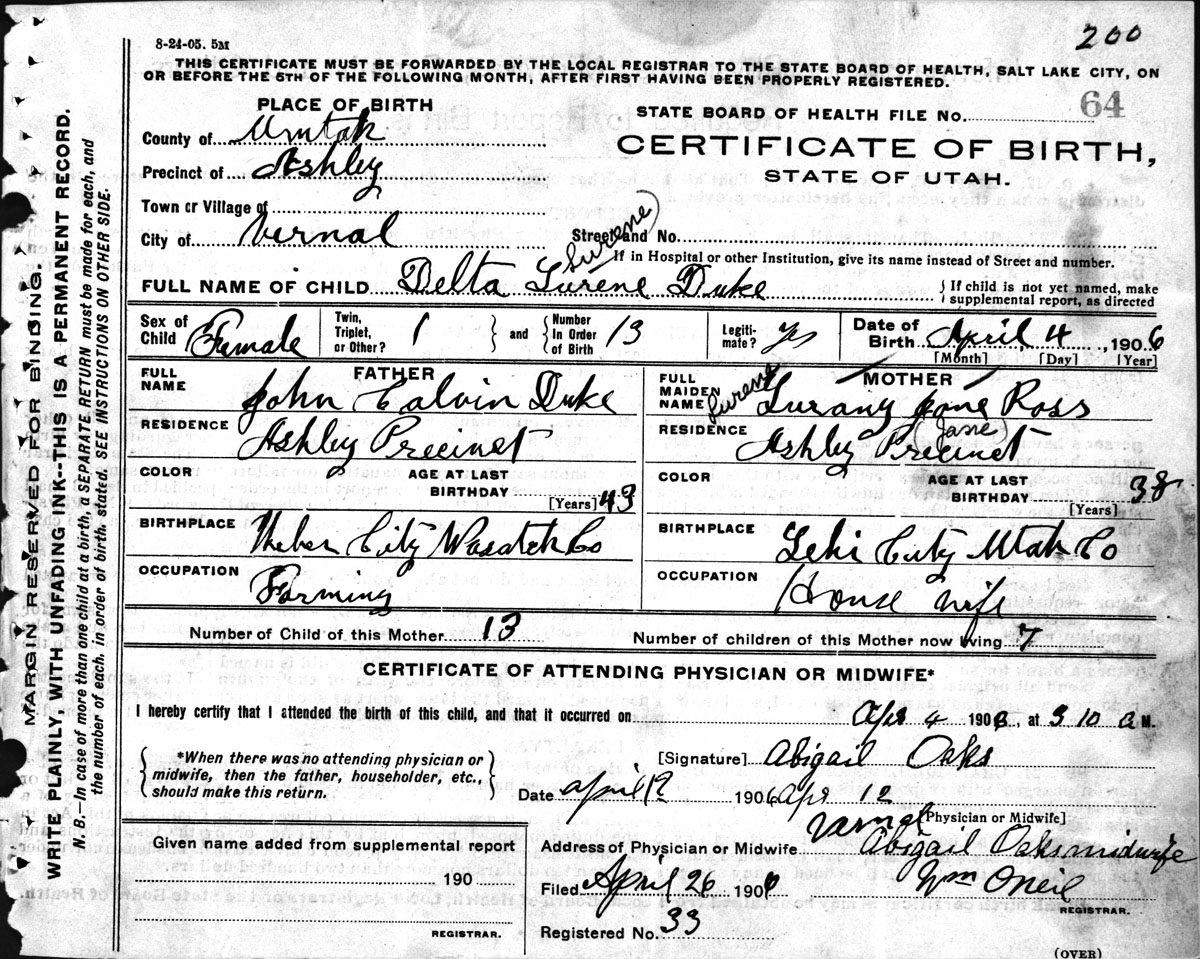 200
8-24-05. 5M
THIS CERTIFICATE MUST BE FORWARDED BY THE LOCAL REGISTRAR TO THE STATE BOARD OF HEALTH, SALT LAKE CITY, ON
OR BEFORE THE 5TH OF THE FOLLOWING MONTH, AFTER FIRST HAVING BEEN PROPERLY REGISTERED.
PLACE OF BIRTH
STATE BOARD OF HEALTH FILE No. 64
County of Uintah
CERTIFICATE OF BIRTH,
Precinct of Ashley
STATE OF UTAH.
Town or Village of
City of Vernal
Street and No.
(Surene)
If in Hospital or other Institution, give its name instead of Street and number.
FULL NAME OF CHILD Delta Lurene Duke
{If child is not yet named, make
supplemental report, as directed
Sex of Child Female
Twin, Triplet, or Other? 1 } and { Number In Order of Birth 13
Legitimate? Yes
Date of Birth April 4, 1906
[Month] [Day] [Year]
FATHER
MOTHER
FULL NAME John Calvin Duke
FULL MAIDEN NAME Surene Lurany Jane Ross
RESIDENCE Ashley Precinct
RESIDENCE Ashley Precinct
(Jane)
COLOR
AGE AT LAST BIRTHDAY 43
[Years]
COLOR
AGE AT LAST BIRTHDAY 38
[Years]
BIRTHPLACE Heber City Wasatch Co
BIRTHPLACE Lehi City Utah Co
OCCUPATION Farming
OCCUPATION House wife
Number of Child of this Mother 13
Number of children of this Mother now living 7
CERTIFICATE OF ATTENDING PHYSICIAN OR MIDWIFE*
I hereby certify that I attended the birth of this child, and that it occurred on Apr 4 1906, at 3 10 a M.
{*When there was no attending physician or
midwife, then the father, householder, etc.,
should make this return.}
[Signature] Abigail Oaks
Date April 12 1906 Apr 12
[Physician or Midwife]
Vernal
Given name added from supplemental report
Address of Physician or Midwife Abigail Oaks midwife
190
Filed April 26 1906 Wm ONeil
REGISTRAR.
REGISTRAR.
Registered No. 33
(OVER)
MARGIN RESERVED FOR BINDING.
WRITE PLAINLY, WITH UNFADING INK--THIS IS A PERMANENT RECORD.
N. B.—In case of more than one child at a birth, a SEPARATE RETURN must be made for each, and
the number of each, in order of birth, stated. SEE INSTRUCTIONS ON OTHER SIDE.